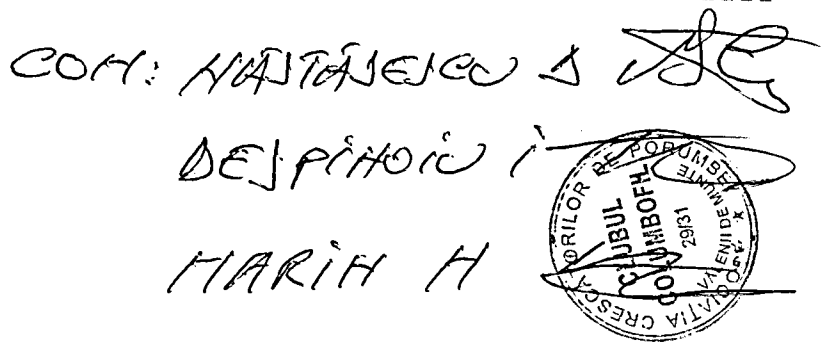 COM: NĂSTĂSESCU D
DESPINOIU I
MARIN N
CRESCĂTORILOR DE PORUMBEI
CLUBUL
COLUMBOFIL
29/31
VALENII DE MUNTE